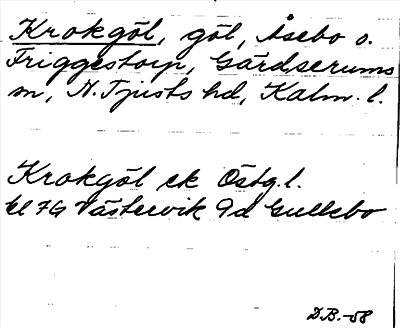 Krokgöl, göl, Åsebo o.
Friggestorp, Gärdserums
sn, N. Tjusts hd, Kalm. l.
Krokgöl ek Östg. l.
bl 7G Västervik 9d Gullebo
D.B.-58